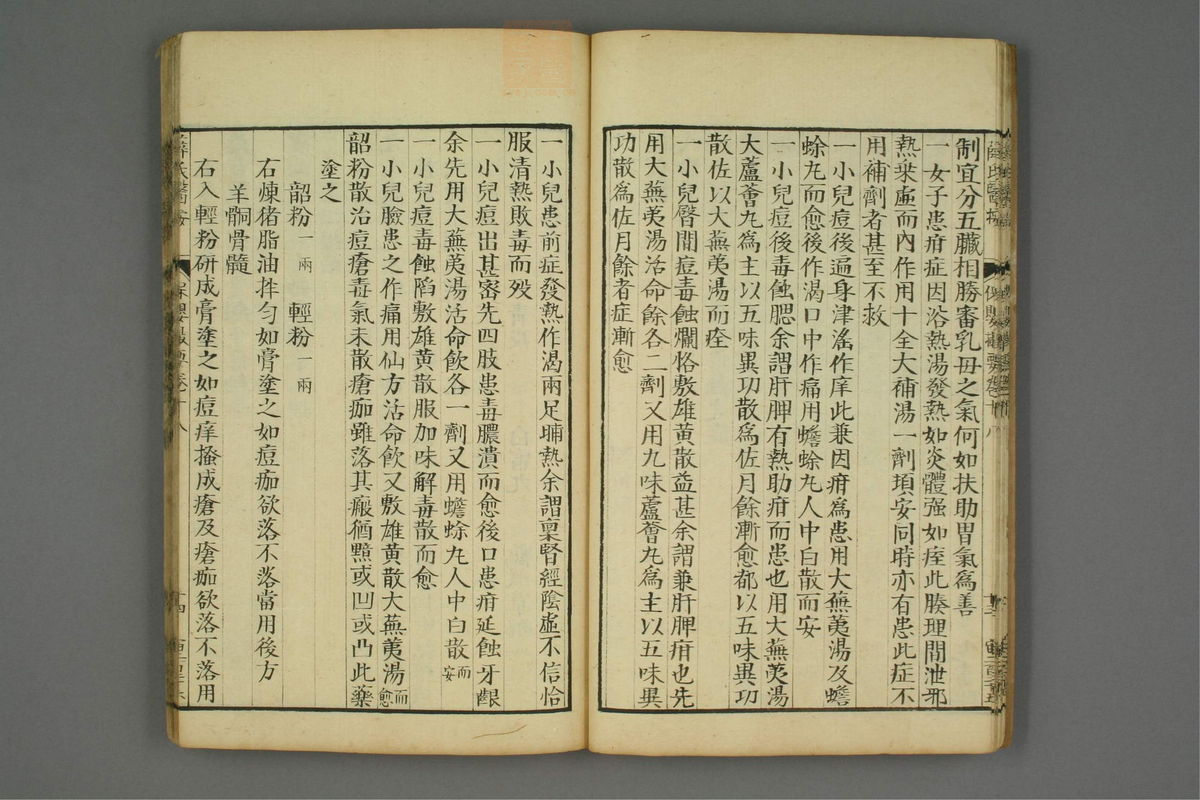 制宜分五臟相勝審乳母之氣何如扶助胃氣為善
一女子患疳症因浴熱湯發熱如炎體强如痓此腠理閒泄邪
熱乗虛而內作用十全大補湯一劑頊安同時亦有患此症不
用補劑者甚至不救
一小兒痘後遍身津滛作庠此兼因疳為患用大蕪荑湯及蟾
蜍丸而愈後作渴口中作痛用蟾蜍丸人中白散而安
一小兒痘後毒蝕腮余謂肝脾有熱助疳而患也用大蕪荑湯
大蘆薈丸為主以五味異功散為佐月餘漸愈都以五味異功
散佐以大蕪荑湯而痊
一小兒臀閒痘毒蝕爛恪敷雄黃散益甚余謂兼肝脾疳也先
用大蕪荑湯活命飲各二劑又用九味蘆薈丸為主以五味異
功散為佐月餘者症漸愈
一小兒患前症發熱作渴兩足晡熱余謂稟腎經陰虛不信恪
服清熱敗毒而歿
一小兒痘出甚密先四肢患毒膿潰而愈後口患疳延蝕牙齦
余先用大蕪荑湯活命飲各一劑又用蟾蜍丸人中白散而安
一小兒痘毒蝕陷敷雄黃散服加味解毒散而愈
一小兒臉患之作痛用仙方活命飲又敷雄黃散大蕪荑湯而愈
韶粉散治痘瘡毒氣未散瘡痂雖落其瘢猶黯或凹或凸此藥
塗之
韶粉一兩 輕粉一兩
右煉猪脂油拌匀如膏塗之如痘痂欲落不落當用後方
羊䯚骨髓
右入輕粉研成膏塗之如痘痒搔成瘡及瘡痂欲落不落用